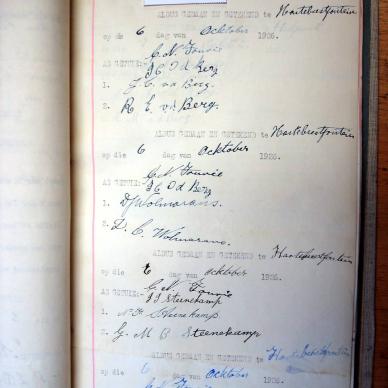 ALDUS GEDAAN EN GETEKEND te Hartebeestfontein
op die 6 dag van Ocktober 1926.
C. N. Fourie
AS GETUIE:-
1. J. C. v d Berg.
2. R. E. v d Berg.
ALDUS GEDAAN EN GETEKEND te Hartebeestfontein
op die 6 dag van Ocktober 1926.
C. N. Fourie
AS GETUIE:-
1. D J Wolmarans.
2. D. C. Wolmarans.
ALDUS GEDAAN EN GETEKEND te Hartebeestfontein
op die 6 dag van Ocktober 1926.
C. N. Fourie
AS GETUIE:- J J Steenekamp
1. Steenekamp
2. G. M. B Steenekamp
ALDUS GEDAAN EN GETEKEND te Hartebeestfontein
op die 6 dag van Ocktober 1926.
C. N. Fourie